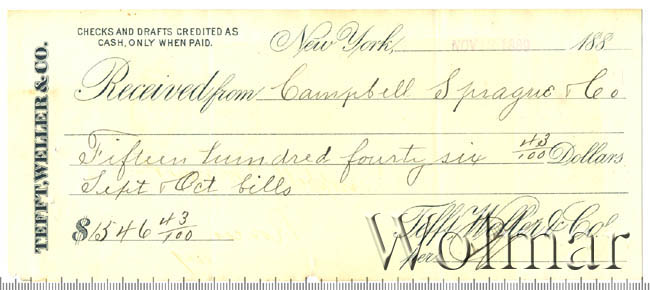 CHECKS AND DRAFTS CREDITED AS
CASH, ONLY WHEN PAID.
TEFFT, WELLER & CO.
New York, 188
Received from Campbell Sprague & Co
Fifteen hundred fourty six 43/100 Dollars
Sept & Oct bills
$1546 43/100
Tefft Weller & Co
per
Wolmar